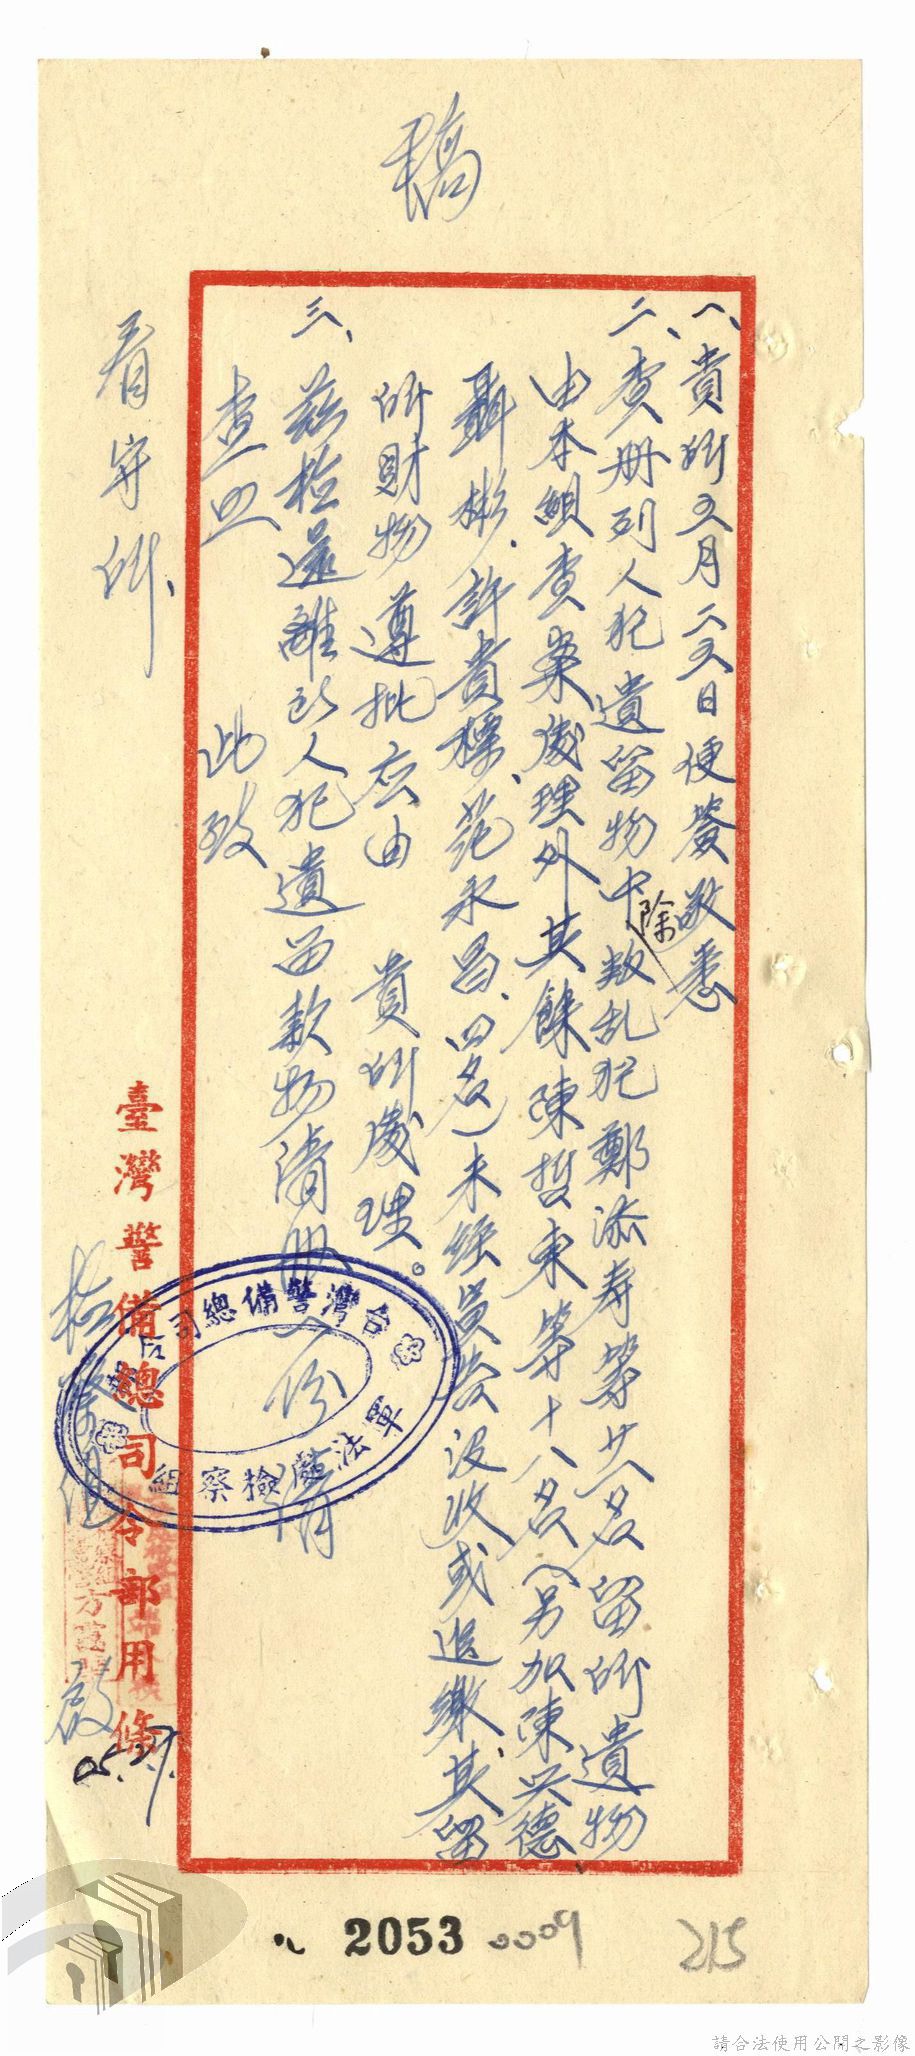 稿
一、貴所五月二五日便箋敬悉
二、查册列人犯遺留物中除叛乱犯鄭添寿等廿一名留所遺物
由本組查案處理外其餘陳哲東等十八名(另加陳兴德、
聶彬、許貴標、范永昌、四名)未經宣告沒收或追繳其留
所財物遵批应由 貴所處理。
三、茲檢還離所人犯遺留款物清册一份請
查照 此致
看守所、
檢察組 啟
05.27.
臺灣警備總司令部用條
台灣警備總司令部
軍法處檢察組
2053
0009
215
請合法使用公開之影像